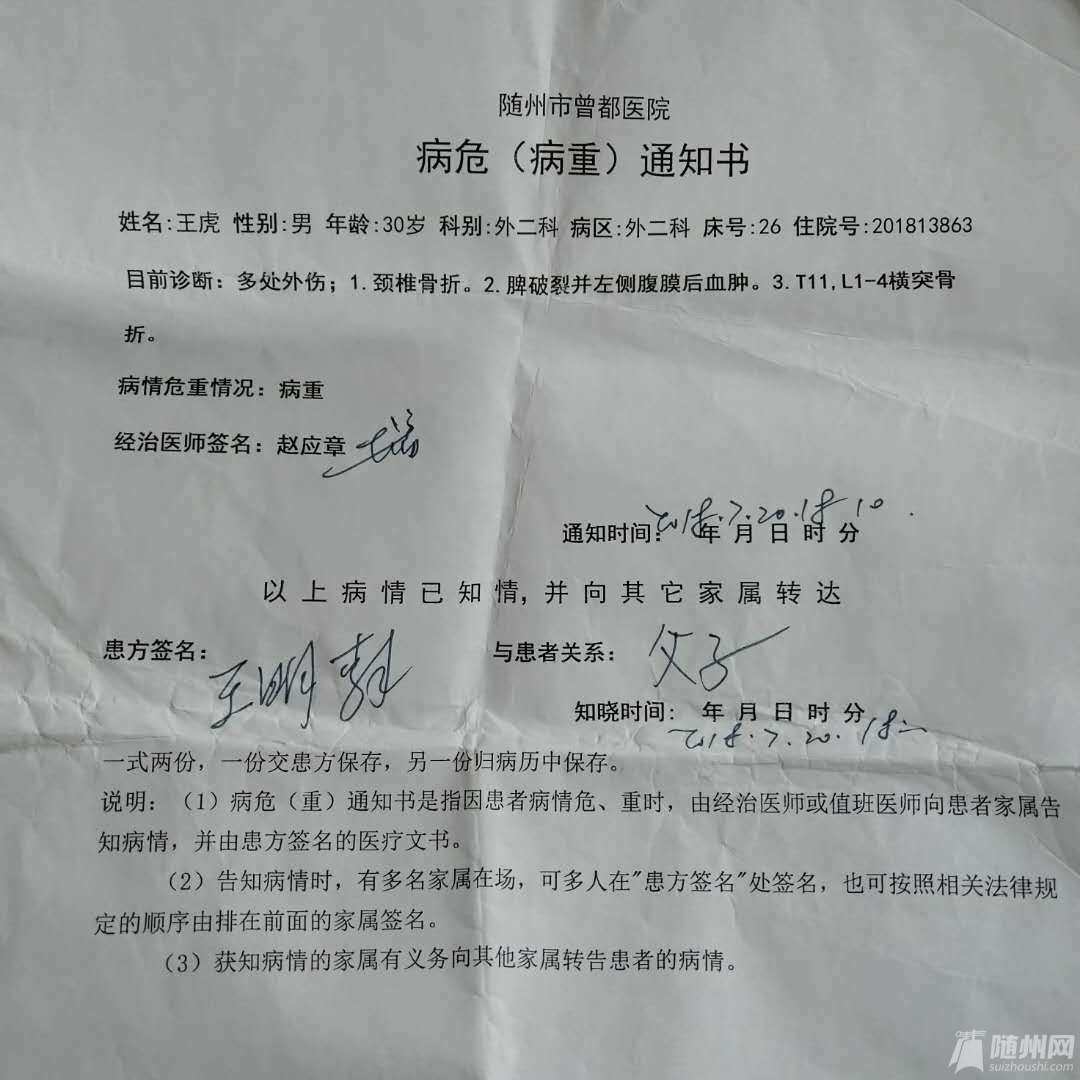 随州市曾都医院
病危（病重）通知书
姓名:王虎 性别:男 年龄:30岁 科别:外二科 病区:外二科 床号:26 住院号:201813863
目前诊断：多处外伤；1.颈椎骨折。2.脾破裂并左侧腹膜后血肿。3.T11,L1-4横突骨
折。
病情危重情况：病重
经治医师签名：赵应章
2018.7.20.18 10
通知时间： 年 月 日 时 分
以上病情已知情,并向其它家属转达
患方签名： 王明 与患者关系： 父子
知晓时间： 年 月 日 时 分
2018.7.20.18
一式两份，一份交患方保存，另一份归病历中保存。
说明：（1）病危（重）通知书是指因患者病情危、重时，由经治医师或值班医师向患者家属告
知病情，并由患方签名的医疗文书。
（2）告知病情时，有多名家属在场，可多人在"患方签名"处签名，也可按照相关法律规
定的顺序由排在前面的家属签名。
（3）获知病情的家属有义务向其他家属转告患者的病情。
随州网
suizhoushi.com